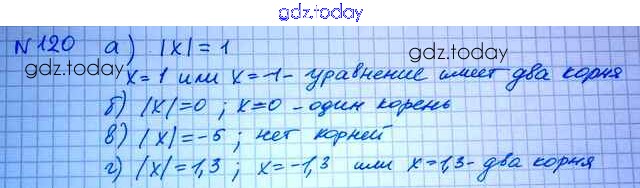 gdz.today
№120 а) |x| = 1
gdz.today
gdz.today
x = 1 или x = -1 - уравнение имеет два корня
б) |x| = 0 ; x = 0 - один корень
в) |x| = -5 ; нет корней
г) |x| = 1,3 ; x = -1,3 или x = 1,3 - два корня